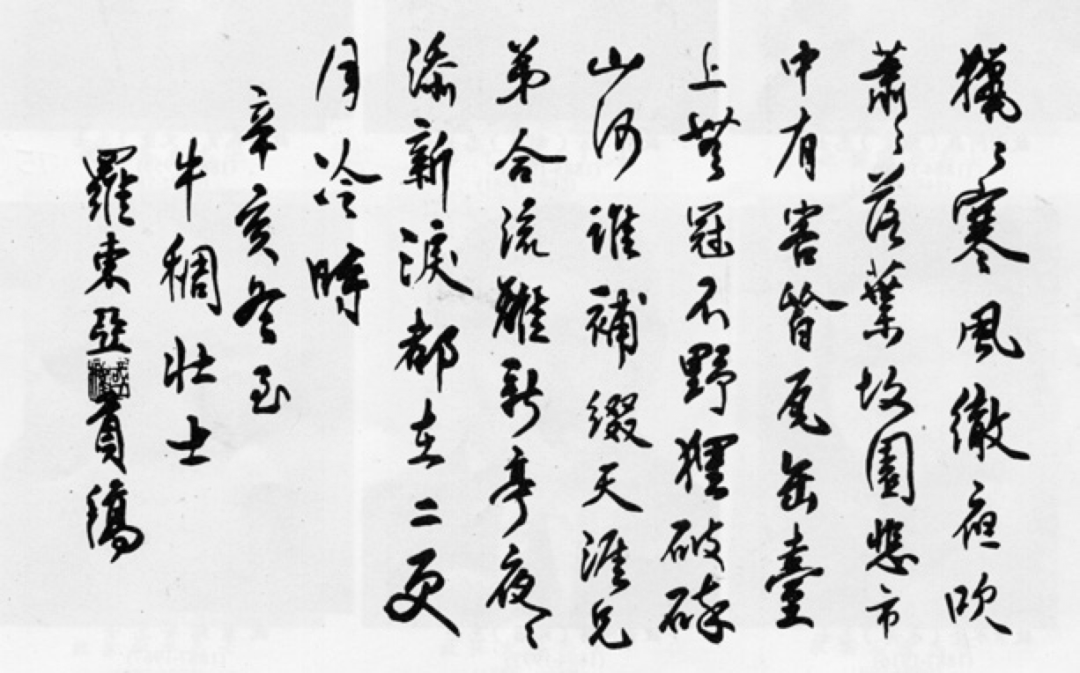 獵々寒風徹夜吹
蕭々落葉故園悲市
中有害皆瓦缶臺
上無冠不野狸破碎
山河誰補綴天涯兄
弟合流離新亭夜々
添新淚都在二更
月冷時
辛亥冬至
牛稠壯士
羅東亞稿